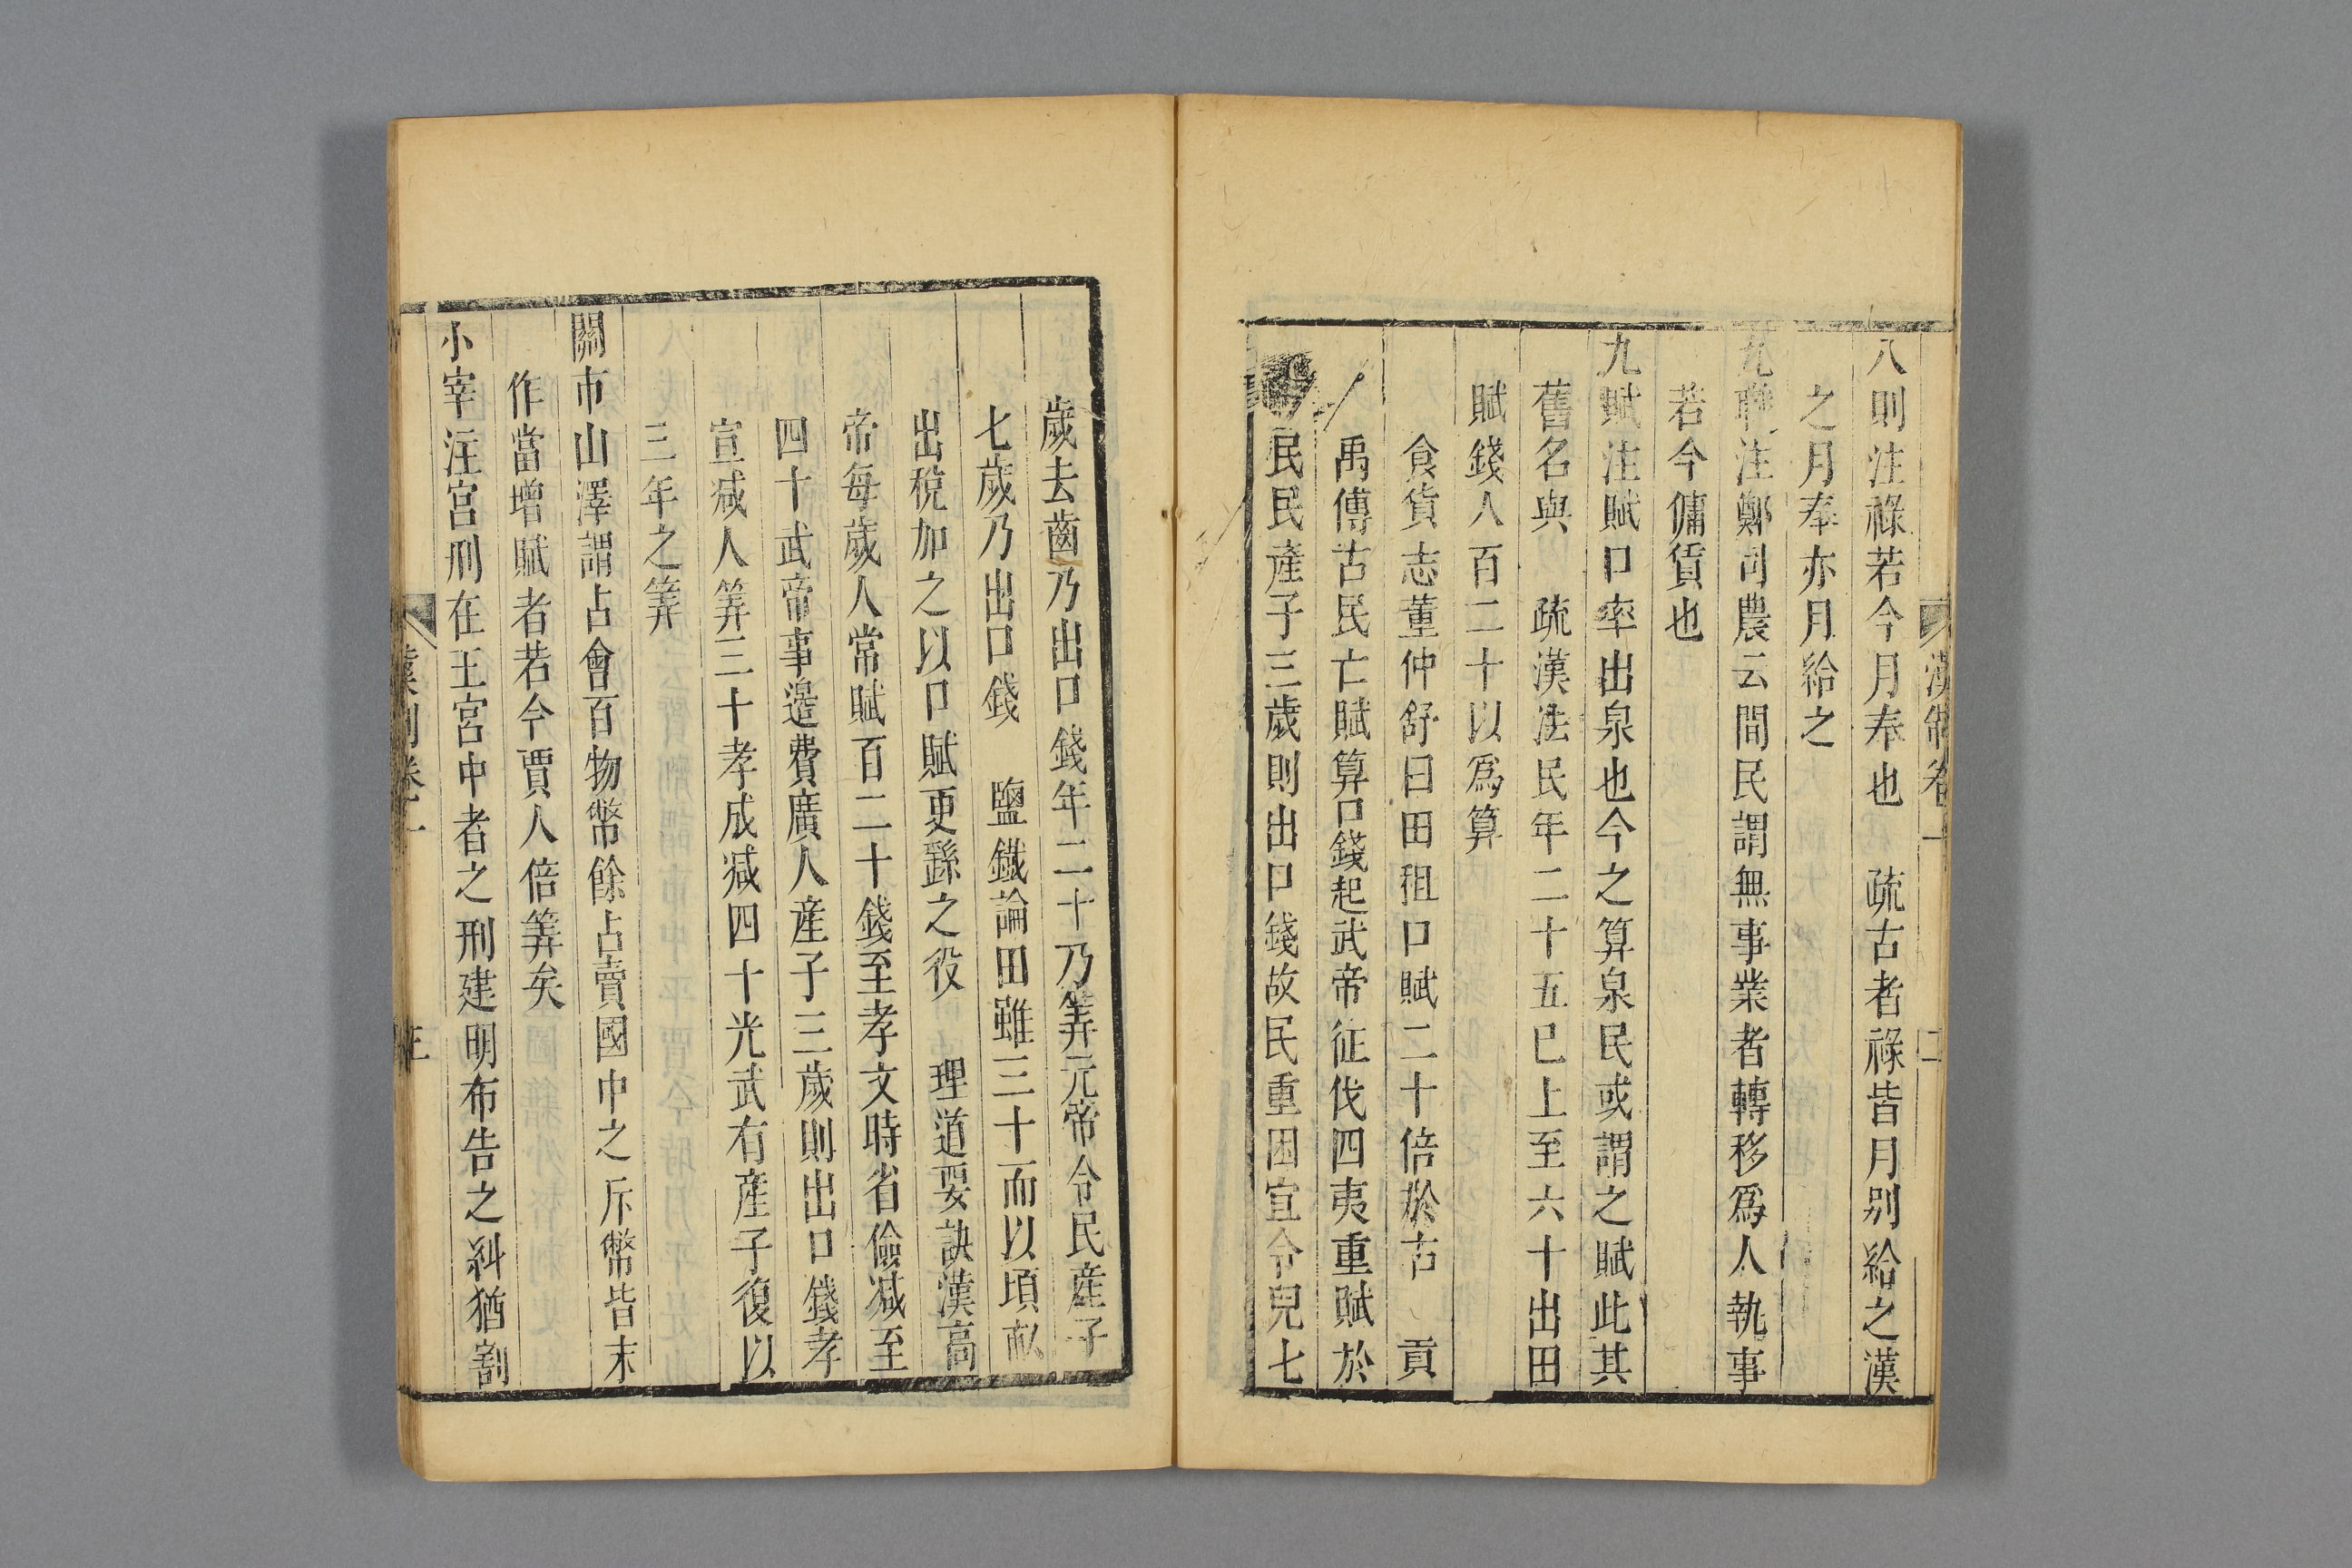 漢制卷一
二
八則注祿若今月奉也　疏古者祿皆月别給之漢
之月奉亦月給之
九職注鄭司農云間民謂無事業者轉移爲人執事
若今傭賃也
九賦注賦口率出泉也今之算泉民或謂之賦此其
舊名與　疏漢法民年二十五已上至六十出田
賦錢人百二十以爲算
食貨志董仲舒曰田租口賦二十倍於古　貢
禹傳古民亡賦算口錢起武帝征伐四夷重賦於
民民產子三歲則出口錢故民重困宜令兒七
歲去齒乃出口錢年二十乃筭元帝令民產子
七歲乃出口錢　鹽鐵論田雖三十而以頃畝
出稅加之以口賦更繇之役　理道要訣漢高
帝每歲人常賦百二十錢至孝文時省儉减至
四十武帝事邉費廣人產子三歲則出口錢孝
宣减人筭三十孝成减四十光武有產子復以
三年之筭
關市山澤謂占會百物幣餘占賣國中之斥幣皆末
作當增賦者若今賈人倍筭矣
小宰注宫刑在王宮中者之刑建明布告之糾猶割
漢制卷一
三